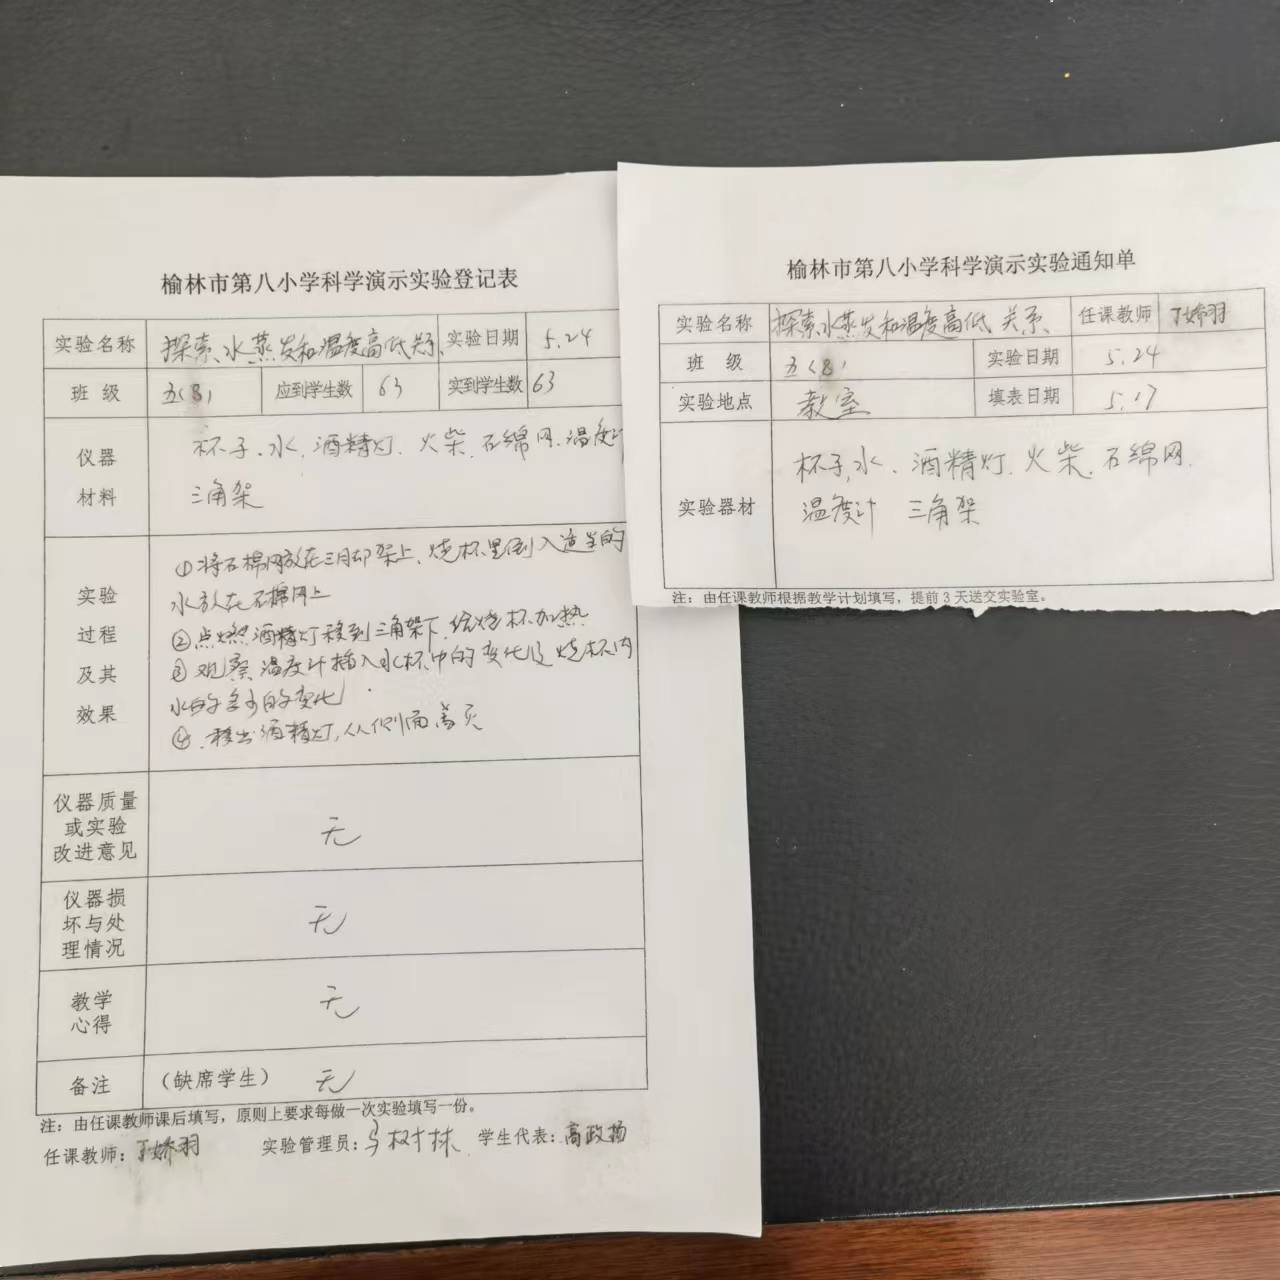 榆林市第八小学科学演示实验登记表
实验名称 探索水蒸发和温度高低关系 实验日期 5.24
班 级 五(8) 应到学生数 63 实到学生数 63
仪器 杯子、水、酒精灯、火柴、石绵网、温度计
材料 三角架
实验 ①将石棉网放在三角却架上、烧杯里倒入适当的
水放在石棉网上
过程 ②点燃酒精灯移到三角架下、给烧杯加热
及其 ③观察温度计插入水杯中的变化及烧杯内
效果 水的多少的变化.
④、移出酒精灯,从侧面盖灭
仪器质量
或实验 无
改进意见
仪器损
坏与处 无
理情况
教学 无
心得
备注 (缺席学生) 无
注：由任课教师课后填写，原则上要求每做一次实验填写一份。
任课教师：丁娇羽 实验管理员： 树林 学生代表：高政扬
榆林市第八小学科学演示实验通知单
实验名称 探索水蒸发和温度高低关系 任课教师 丁娇羽
班 级 五(8) 实验日期 5.24
实验地点 教室 填表日期 5.17
实验器材 杯子,水、酒精灯、火柴、石绵网、
温度计 三角架
注：由任课教师根据教学计划填写，提前3天送交实验室。